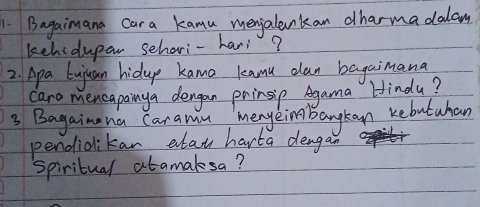 1. Bagaimana Cara kamu menjalankan dharma dalam
kehidupan sehari-hari ?
2. Apa tujuan hidup kama kamu dan bagaimana
cara mencapainya dengan prinsip Agama Hindu ?
3 Bagaimana Caramu menyeimbangkan kebutuhan
pendidikan atau harta dengan
Spiritual atamaksa ?